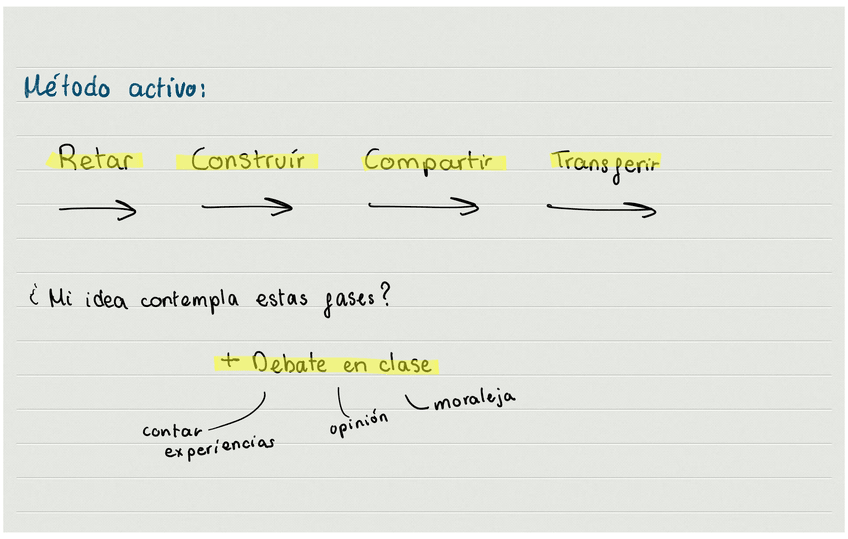 Método activo:
Retar Construír Compartir Transferir
¿Mi idea contempla estas fases?
+ Debate en clase
contar experiencias
opinión
moraleja